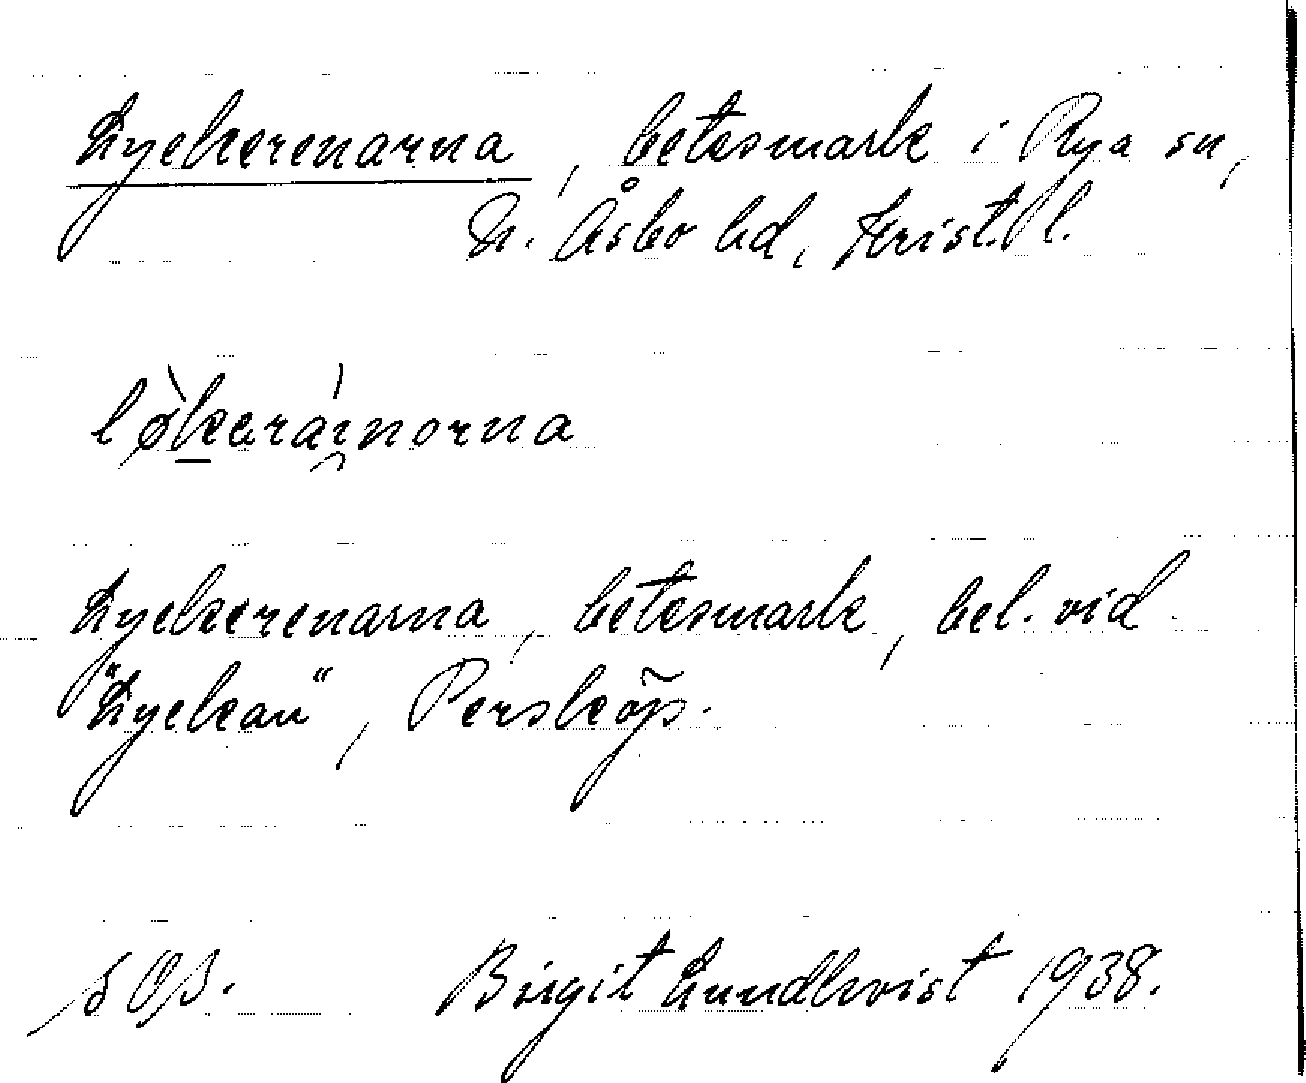 Lyckerenarna, betesmark i Rya sn,
N. Åsbo hd, Krist. l.
løkaráinorna
Lyckerenarna, betesmark, bel. vid
"Lyckan", Persköp.
Birgit Lundkvist 1938.